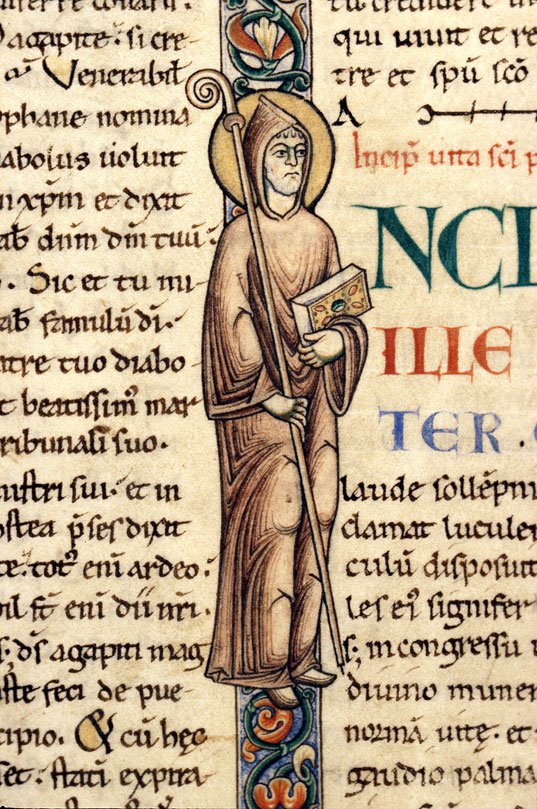 agapite. si cre-
Venerabil
ophane nomina
iabolus uoluit
n xp̄m et dixit
ab dn̄m dm̄ tuū:
Sic et tu mi-
ab famulū dī.
tre tuo diabo-
t beatissim̄ mar
tribunali suo.
nistri sui. et in
ostea p̄ses dixit
te. tot᷒ enī ardeo:
il fc̄ enī dn̄i nr̄i.
s; dc̄s agapiti mag
iste feci de pue-
cipio. Et cū hęc
set. stati expira
tu. credidere
qui uiuit et re
tre et spū scō
A
Incip̄ uita scī
NCL
ILLE
TER.
laude sollēpni
clamat luculen
culū disposuit
les ei᷒ signifer
s; in congressu
diuino muner
normā uitę. et
gaudio palma